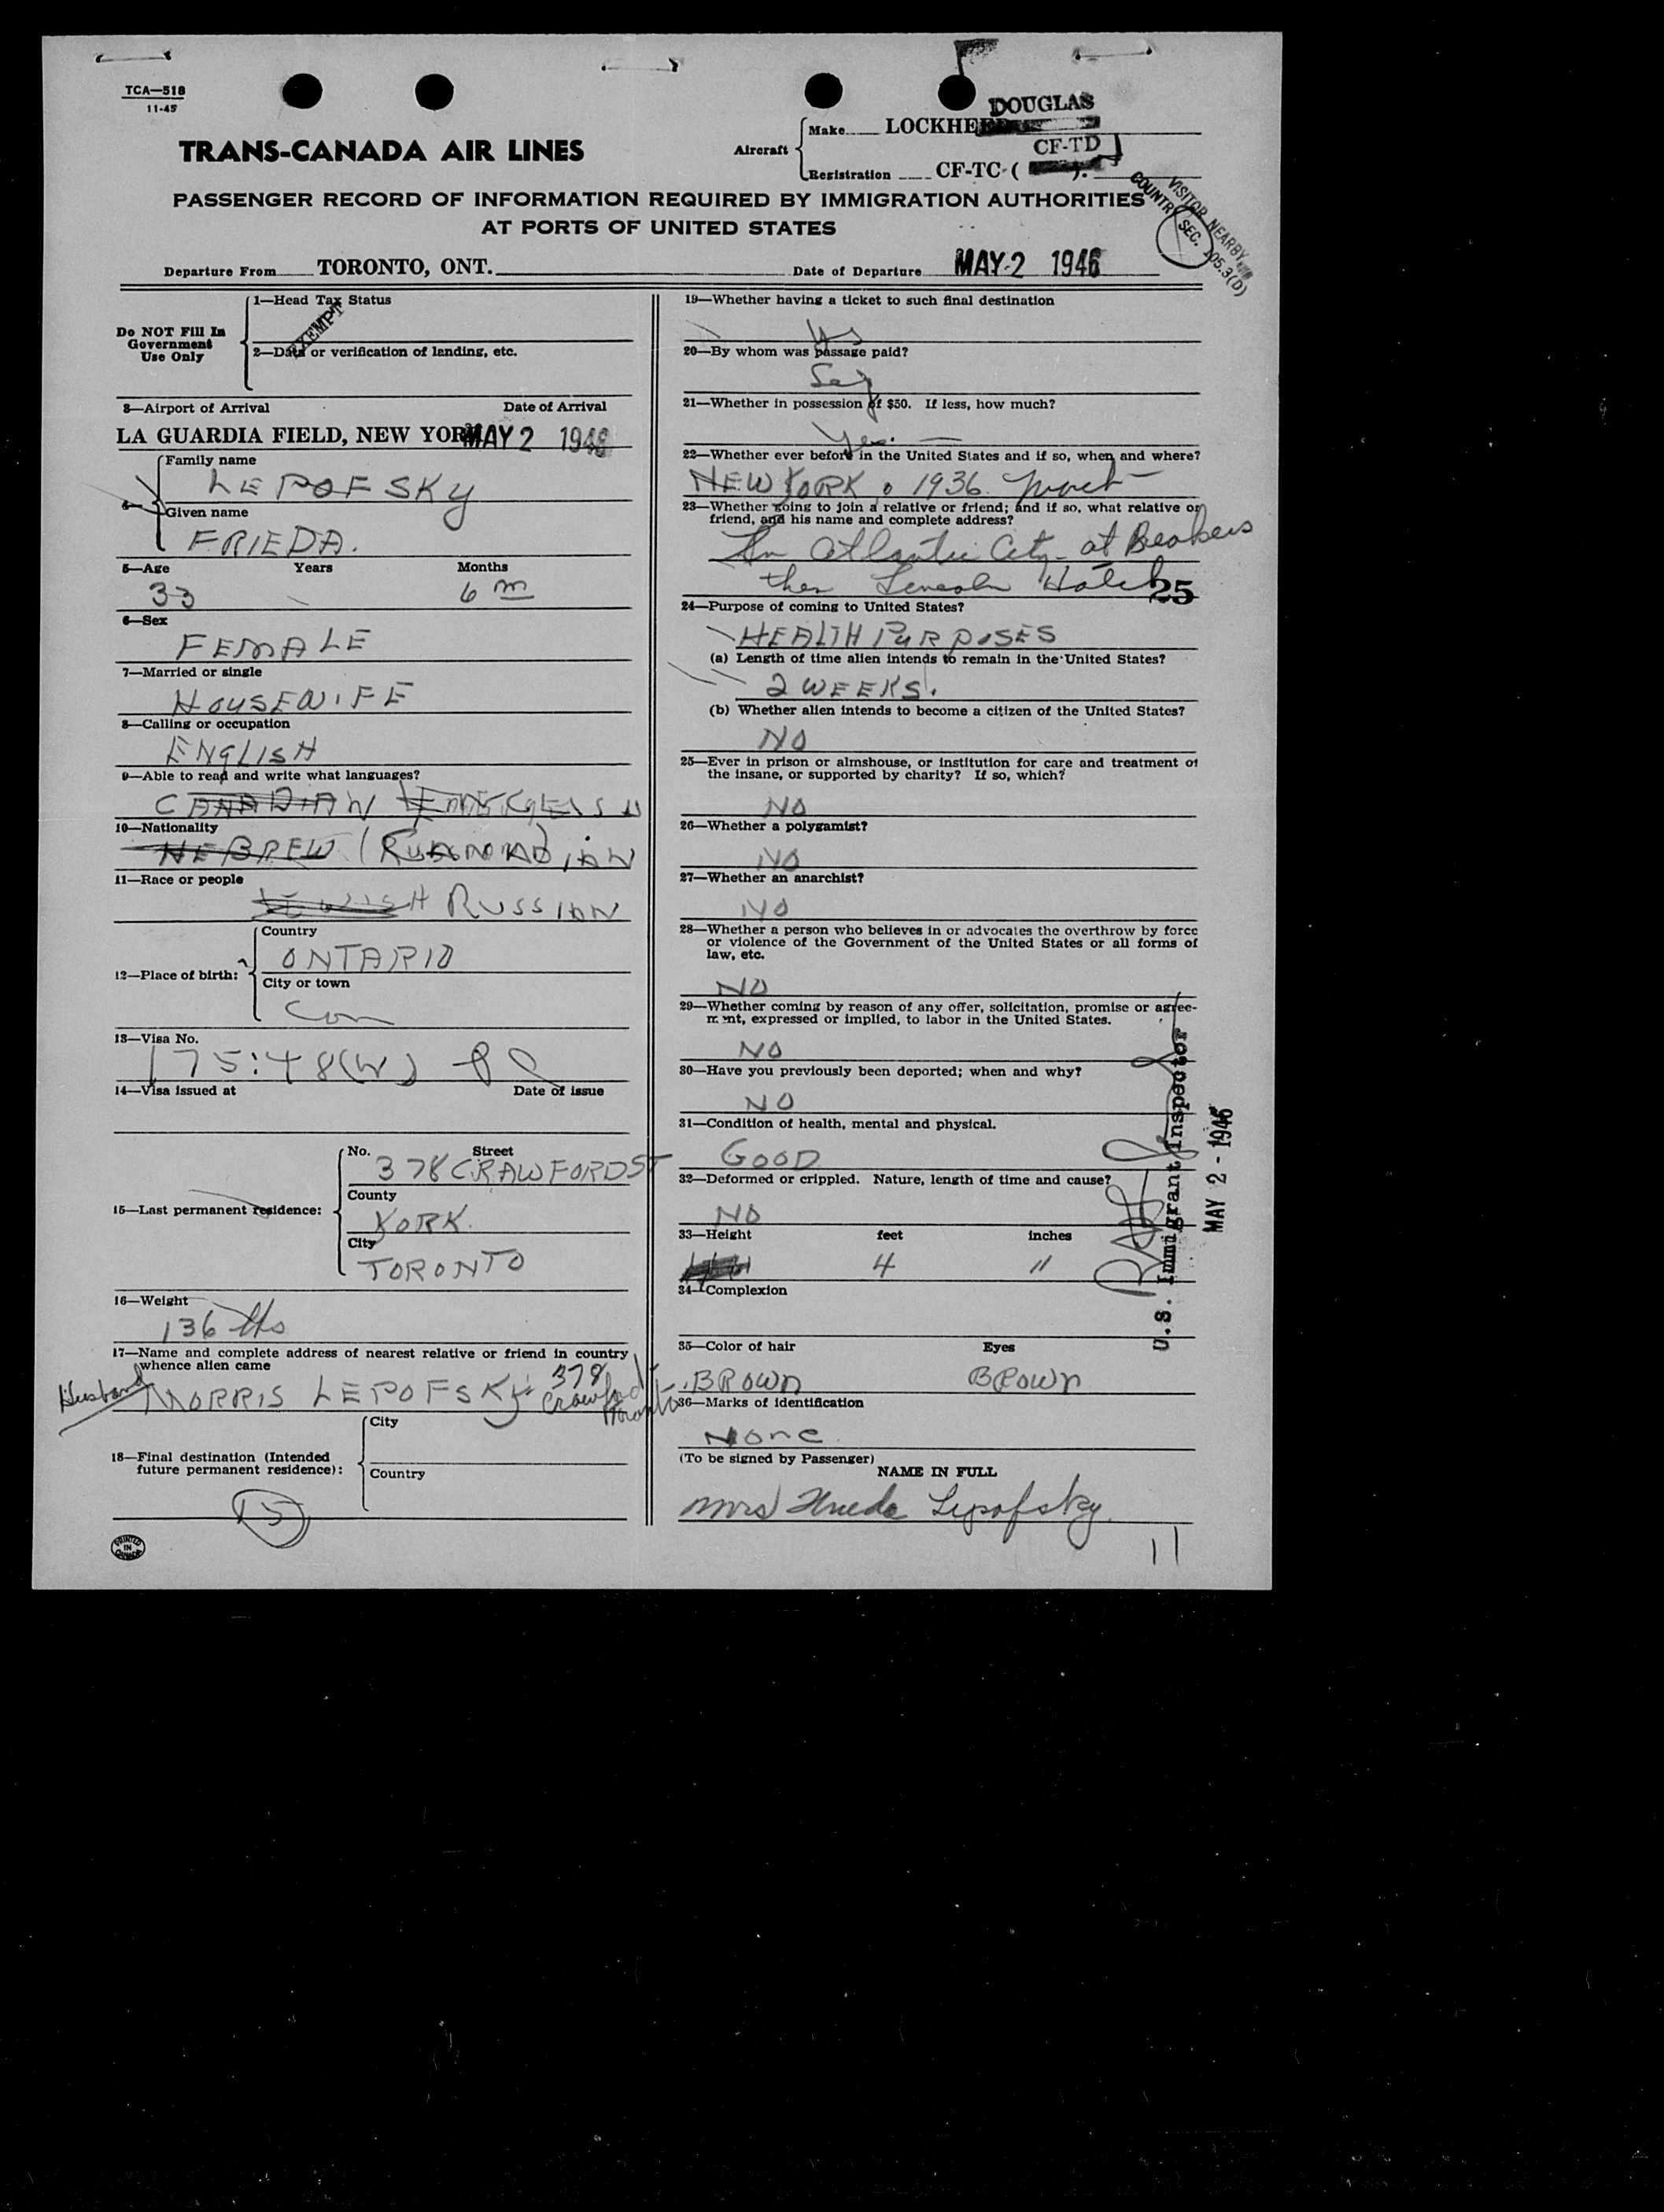 TCA—518
11-45
DOUGLAS
Make LOCKHEED
TRANS-CANADA AIR LINES
Aircraft
CF-TD
Registration CF-TC- ( ).
PASSENGER RECORD OF INFORMATION REQUIRED BY IMMIGRATION AUTHORITIES
AT PORTS OF UNITED STATES
VISITOR NEARBY
COUNTRY SEC. 105.3(D)
Departure From TORONTO, ONT. Date of Departure MAY 2 1946
Do NOT Fill In
Government
Use Only
1—Head Tax Status
EXEMPT
2—Data or verification of landing, etc.
3—Airport of Arrival Date of Arrival
LA GUARDIA FIELD, NEW YORK MAY 2 1946
Family name
LEPOFSKY
4—
Given name
FRIEDA.
5—Age Years Months
33 6 m
6—Sex
FEMALE
7—Married or single
HOUSEWIFE
8—Calling or occupation
ENGLISH
9—Able to read and write what languages?
CANADIAN
10—Nationality
HEBREW
11—Race or people
JEWISH RUSSIAN
12—Place of birth:
Country
ONTARIO
City or town
Can
13—Visa No.
175:48(W)
14—Visa issued at Date of issue
15—Last permanent residence:
No. Street
378 CRAWFORD ST
County
YORK.
City
TORONTO
16—Weight
136 lbs
17—Name and complete address of nearest relative or friend in country
whence alien came
Husband MORRIS LEPOFSKY 378
Crawford
Toronto
18—Final destination (Intended
future permanent residence):
City
Country
15
PRINTED
IN
CANADA
19—Whether having a ticket to such final destination
Yes
20—By whom was passage paid?
Self
21—Whether in possession of $50. If less, how much?
Yes. —
22—Whether ever before in the United States and if so, when and where?
NEW YORK 1936
23—Whether going to join a relative or friend; and if so, what relative or
friend, and his name and complete address?
In Atlantic City - at Breakers
then Lincoln Hotel
25
24—Purpose of coming to United States?
HEALTH PURPOSES
(a) Length of time alien intends to remain in the United States?
2 WEEKS.
(b) Whether alien intends to become a citizen of the United States?
NO
25—Ever in prison or almshouse, or institution for care and treatment of
the insane, or supported by charity? If so, which?
NO
26—Whether a polygamist?
NO
27—Whether an anarchist?
NO
28—Whether a person who believes in or advocates the overthrow by force
or violence of the Government of the United States or all forms of
law, etc.
NO
29—Whether coming by reason of any offer, solicitation, promise or agree-
ment, expressed or implied, to labor in the United States.
NO
30—Have you previously been deported; when and why?
NO
31—Condition of health, mental and physical.
GOOD
32—Deformed or crippled. Nature, length of time and cause?
NO
33—Height feet inches
4 11
34—Complexion
35—Color of hair Eyes
BROWN BROWN
36—Marks of identification
None
(To be signed by Passenger)
NAME IN FULL
Mrs Frieda Lepofsky.
11
U.S. Immigrant Inspector
MAY 2 - 1946